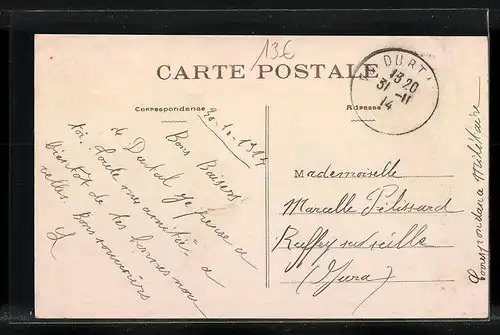 13€
CARTE POSTALE
DURT
13 20
31 - 11
14
Correspondance
Adresse
30-10-1914
Bons Baisers
de Durtal Je pense a
toi. Toute mon amitié a
bientot de tes bonnes nou
velles. Bons souvenirs
Mademoiselle
Marcelle Pelissard
Ruffey sur Seille
(Jura)
Correspondance Militaire